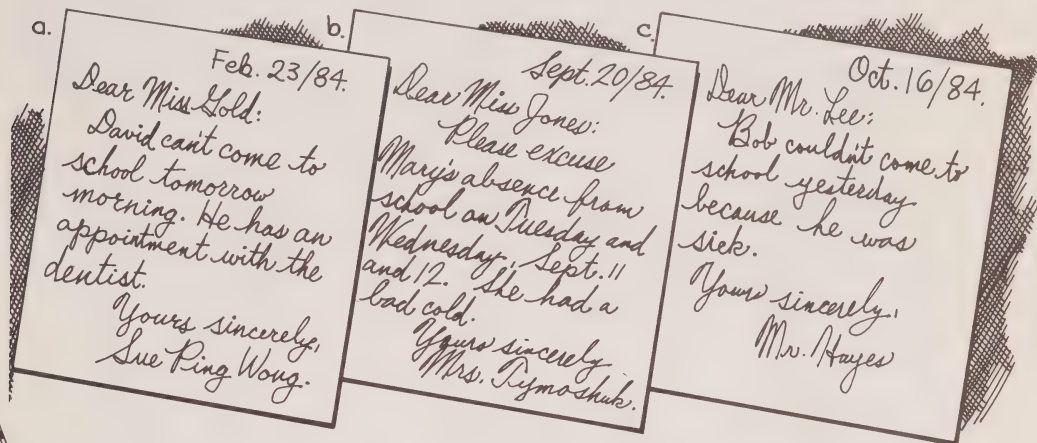 a.
Feb. 23/84.
Dear Miss Gold:
David can't come to
school tomorrow
morning. He has an
appointment with the
dentist.
Yours sincerely,
Sue Ping Wong.
b.
Sept. 20/84.
Dear Miss Jones:
Please excuse
Mary's absence from
school on Tuesday and
Wednesday, Sept. 11
and 12. She had a
bad cold.
Yours sincerely
Mrs. Tymoshuk.
c.
Oct. 16/84.
Dear Mr. Lee:
Bob couldn't come to
school yesterday
because he was
sick.
Yours sincerely,
Mr. Hayes